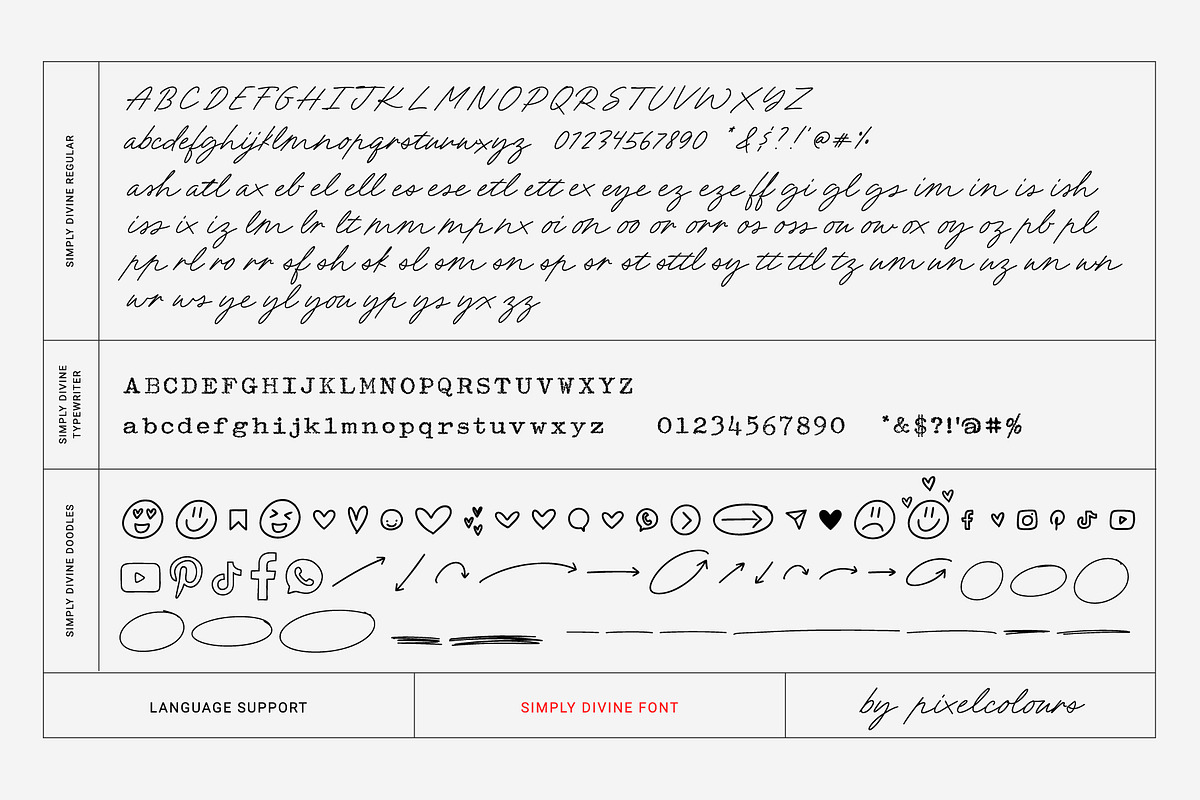 SIMPLY DIVINE REGULAR
ABCDEFGHIJKLMNOPQRSTUVWXYZ
abcdefghijklmnopqrstuvwxyz 01234567890 *&$?!'@#%
ash atl ax eb el ell es ese etl ett ex eye ez eze ff gi gl gs im in is ish
iss ix iz lm lr lt mm mp nx oi on oo or orr os oss ou ow ox oy oz pb pl
pp rl ro rr sf sh sk sl sm sn sp sr st sttl sy tt ttl tz um un uz wn wn
wr ws ye yl you yp ys yx zz
SIMPLY DIVINE
TYPEWRITER
ABCDEFGHIJKLMNOPQRSTUVWXYZ
abcdefghijklmnopqrstuvwxyz 01234567890 *&$?!'@#%
SIMPLY DIVINE DOODLES
LANGUAGE SUPPORT
SIMPLY DIVINE FONT
by pixelcolours